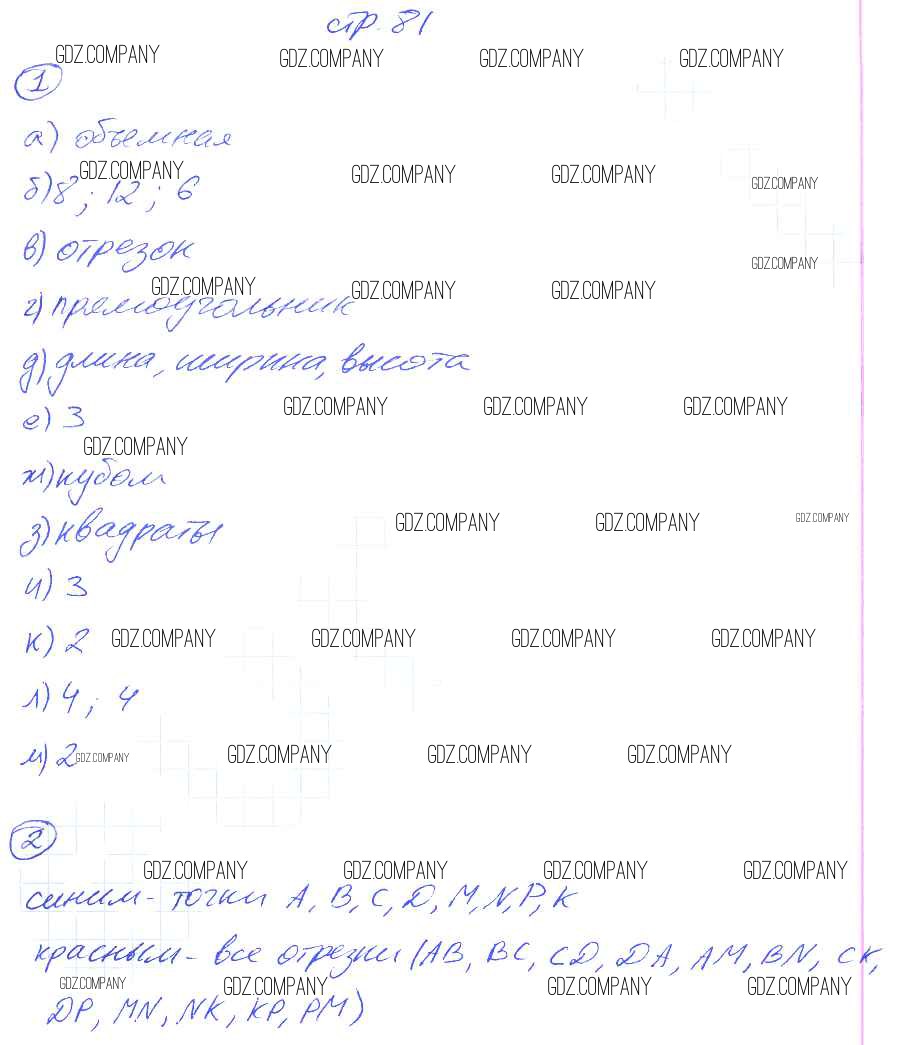 стр. 81
GDZ.COMPANY GDZ.COMPANY GDZ.COMPANY GDZ.COMPANY
1
а) объемная
GDZ.COMPANY GDZ.COMPANY GDZ.COMPANY GDZ.COMPANY
б) 8 ; 12 ; 6
в) отрезок
GDZ.COMPANY
GDZ.COMPANY GDZ.COMPANY GDZ.COMPANY
г) прямоугольник
д) длина, ширина, высота
GDZ.COMPANY GDZ.COMPANY GDZ.COMPANY
е) 3
GDZ.COMPANY
ж) кубом
з) квадраты
GDZ.COMPANY GDZ.COMPANY GDZ.COMPANY
и) 3
к) 2 GDZ.COMPANY GDZ.COMPANY GDZ.COMPANY GDZ.COMPANY
л) 4 ; 4
м) 2 GDZ.COMPANY GDZ.COMPANY GDZ.COMPANY GDZ.COMPANY
2
GDZ.COMPANY GDZ.COMPANY GDZ.COMPANY GDZ.COMPANY
синим - точки A, B, C, D, M, N, P, K
красным - все отрезки (AB, BC, CD, DA, AM, BN, CK,
GDZ.COMPANY GDZ.COMPANY GDZ.COMPANY GDZ.COMPANY
DP, MN, NK, KP, PM)